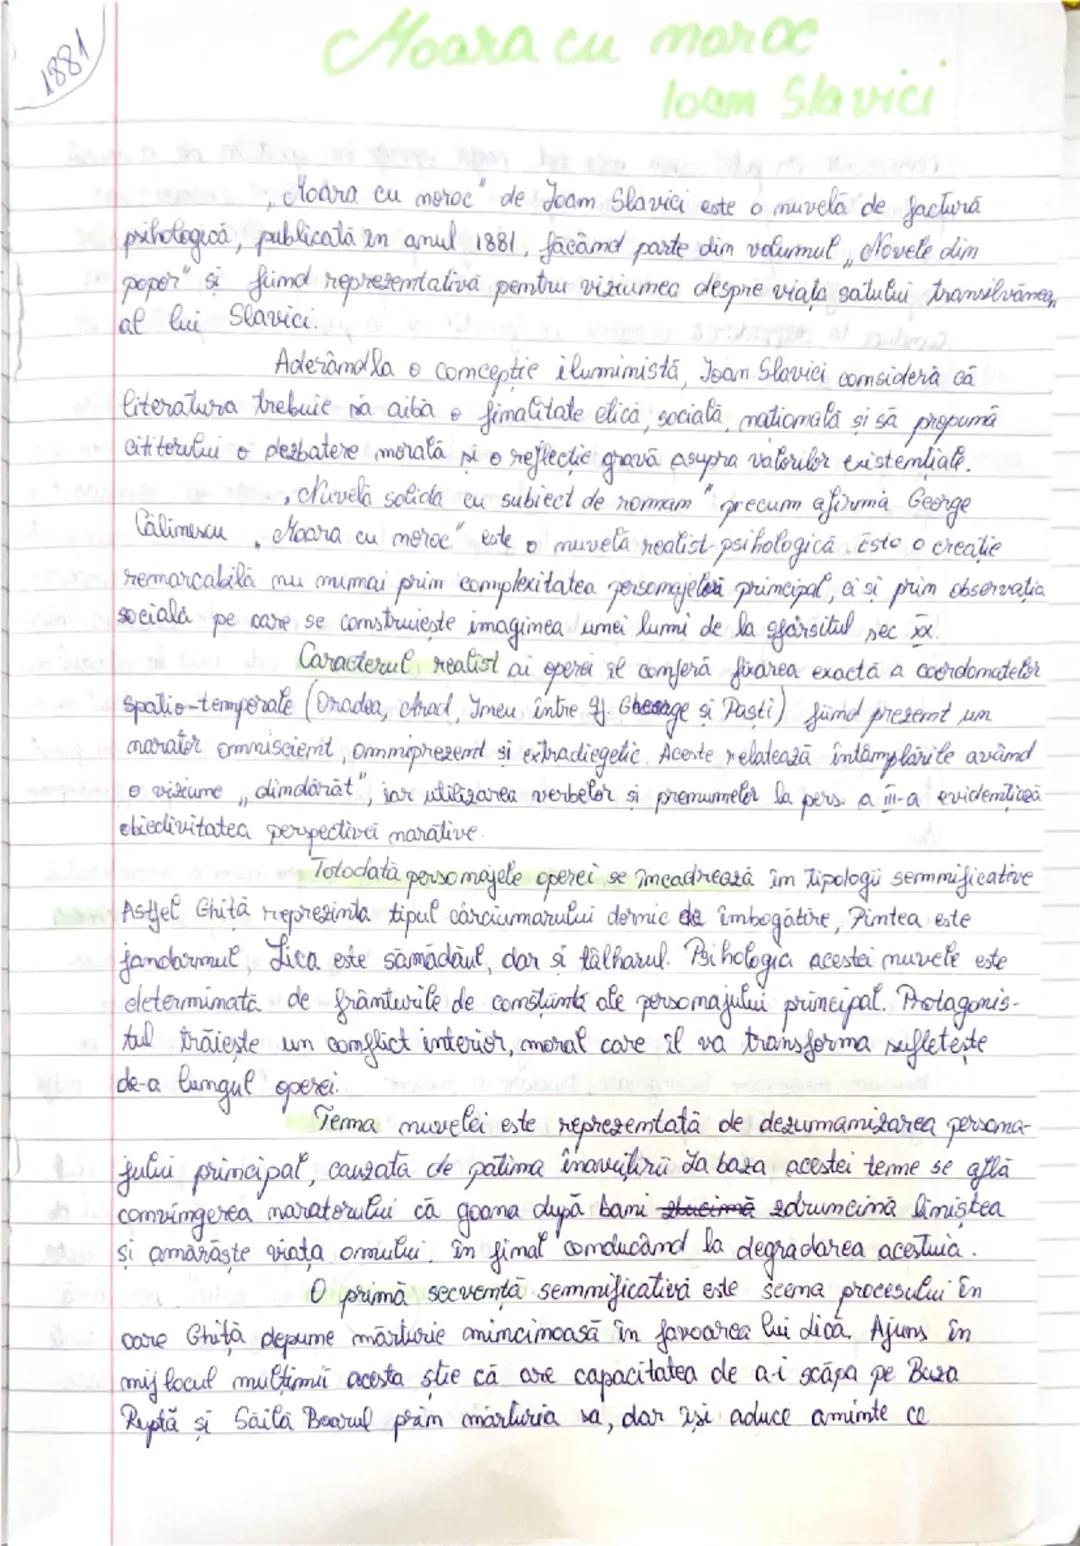 1881
Moara cu noroc
Ioan Slavici
„Moara cu noroc" de Ioan Slavici este o nuvelă de factură
psihologică, publicată în anul 1881, făcând parte din volumul „Novele din
popor" și fiind reprezentativă pentru viziunea despre viața satului transilvănean
al lui Slavici.
Aderând la o concepție iluministă, Ioan Slavici consideră că
literatura trebuie să aibă o finalitate etică, socială, națională și să propună
cititorului o dezbatere morală și o reflecție gravă asupra valorilor existențiale.
„Nuvelă solidă cu subiect de roman" precum afirmă George
Călinescu „Moara cu noroc" este o nuvelă realist-psihologică. Este o creație
remarcabilă nu numai prin complexitatea personajelor principal, ci și prin observația
socială pe care se construiește imaginea unei lumi de la sfârșitul sec xx.
Caracterul realist al operei îl conferă fixarea exactă a coordonatelor
spațio-temporale (Oradea, Arad, Ineu, între Sf. Gheorge și Paști) fiind prezent un
narator omniscient, omniprezent și extradiegetic. Aceste relatează întâmplările având
o viziune „dindărăt", iar utilizarea verbelor și pronumelor la pers. a III-a evidențiază
obiectivitatea perspectivei narative.
Totodată personajele operei se încadrează în tipologii semnificative
Astfel Ghiță reprezintă tipul cârciumarului dornic de îmbogățire, Pintea este
jandarmul, Lica este sămădăul, dar și tâlharul. Psihologia acestei nuvele este
determinată de frânturile de conștiință ale personajului principal. Protagonis-
tul trăiește un conflict interior, moral care îl va transforma sufletește
de-a lungul operei.
Tema nuvelei este reprezentată de dezumanizarea persona-
jului principal, cauzată de patima înavuțirii. La baza acestei teme se află
convingerea naratorului că goana după bani zdruncină liniștea
și amărăște viața omului. în final conducând la degradarea acestuia.
O primă secvență semnificativă este scena procesului în
care Ghiță depune mărturie mincinoasă în favoarea lui Lică. Ajuns în
mijlocul mulțimii acesta știe că are capacitatea de a-i scăpa pe Buza
Ruptă și Săilă Boarul prin mărturia sa, dar își aduce aminte ce